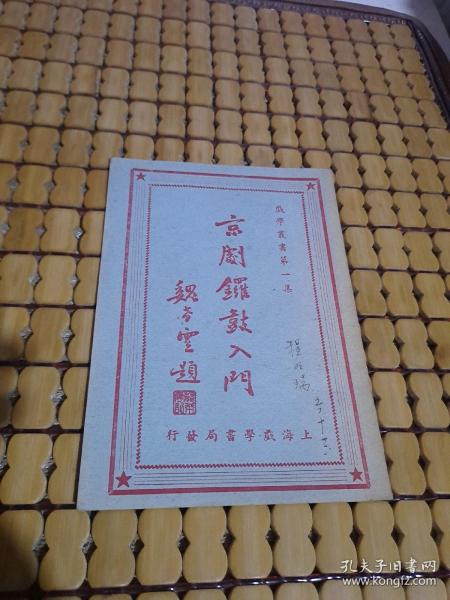 戲學叢書第一集
京劇鑼鼓入門
魏
雲題
上海戲學書局發行
孔夫子旧书网
www.kongfz.com